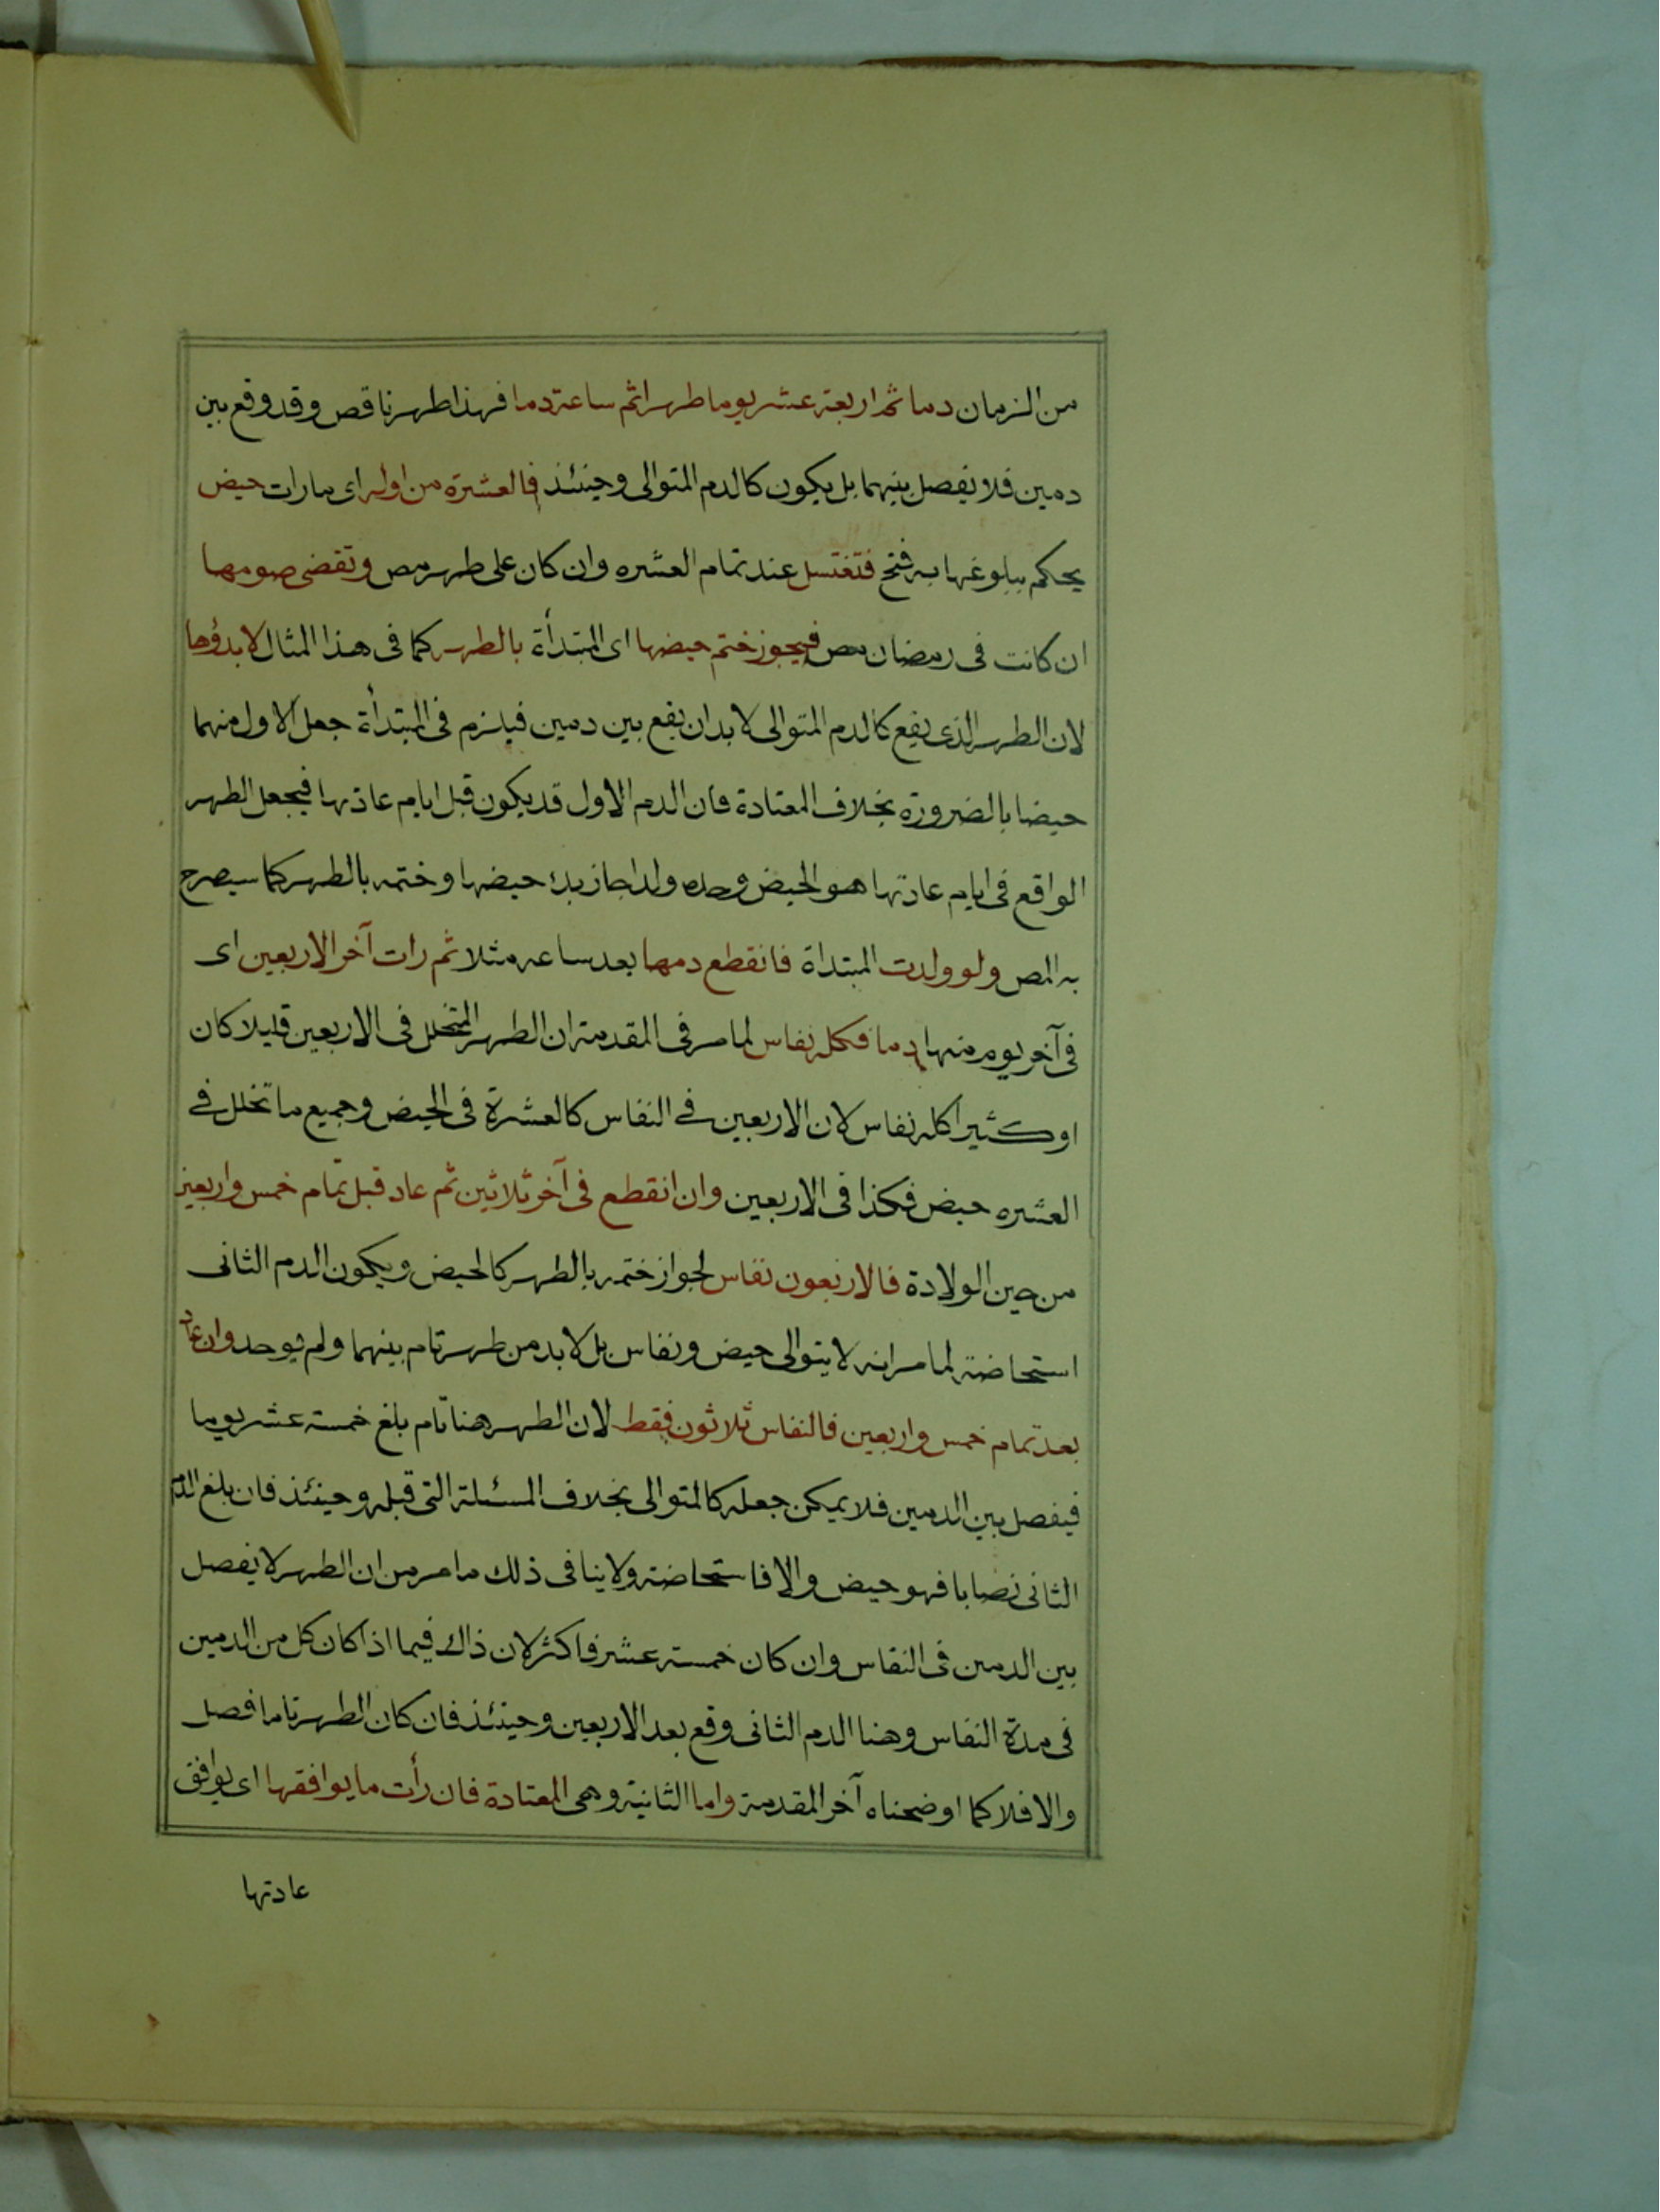 من الزمان دما ثم اربعة عشر يوما طهرا ثم ساعة دما فهذا طهر ناقص وقد وقع بين
دمين فلا يفصل بينهما بل يكون كالدم المتوالى وحينئذ فالعشرة من اوله اى ما رات حيض
يحكم ببلوغها به فتح فتغتسل عند تمام العشره وان كان على طهر مص وتقضى صومها
ان كانت فى رمضان مص فيجوز ختم حيضها اى المبتدأة بالطهر كما فى هذا المثال لا بدؤها
لان الطهر الذى يقع كالدم المتوالى لا بد ان يقع بين دمين فيلزم فى المبتدأة جعل الاول منهما
حيضا بالضرورة بخلاف المعتادة فان الدم الاول قد يكون قبل ايام عادتها فيجعل الطهر
الواقع فى ايام عادتها هو الحيض وحده ولذا جاز بدء حيضها وختمه بالطهر كما سيصرح
به المص ولو ولدت المبتداة فانقطع دمها بعد ساعه مثلا ثم رات آخر الاربعين اى
فى آخر يوم منها دما فكله نفاس لما مر فى المقدمة ان الطهر المتخلل فى الاربعين قليلا كان
او كثيرا كله نفاس لان الاربعين فى النفاس كالعشرة فى الحيض وجميع ما تخلل فى
العشره حيض فكذا فى الاربعين وان انقطع فى آخر ثلاثين ثم عاد قبل تمام خمس واربعين
من حين الولادة فالاربعون نفاس لجواز ختمه بالطهر كالحيض ويكون الدم الثانى
استحاضة لما مر انه لا يتوالى حيض ونفاس بل لا بد من طهر تام بينهما ولم يوجد وان عاد
بعد تمام خمس واربعين فالنفاس ثلاثون فقط لان الطهر هنا تام بلغ خمسة عشر يوما
فيفصل بين الدمين فلا يمكن جعله كالمتوالى بخلاف المسئلة التى قبله وحينئذ فان بلغ الدم
الثانى نصابا فهو حيض والا فاستحاضة ولا ينافى ذلك ما مر من ان الطهر لا يفصل
بين الدمين فى النفاس وان كان خمسة عشر فاكثر لان ذاك فيما اذا كان كل من الدمين
فى مدة النفاس وهنا الدم الثانى وقع بعد الاربعين وحينئذ فان كان الطهر تاما فصل
والا فلا كما اوضحناه آخر المقدمة واما الثانية وهى المعتادة فان رأت ما يوافقها اى يوافق
عادتها